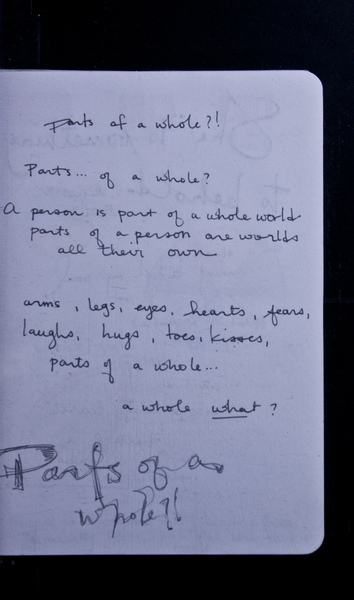 Parts of a whole?!
Parts... of a whole?
A person is part of a whole world
parts of a person are worlds
all their own
arms, legs, eyes, hearts, fears,
laughs, hugs, toes, kisses,
parts of a whole...
a whole what?
Parts of a
whole?!